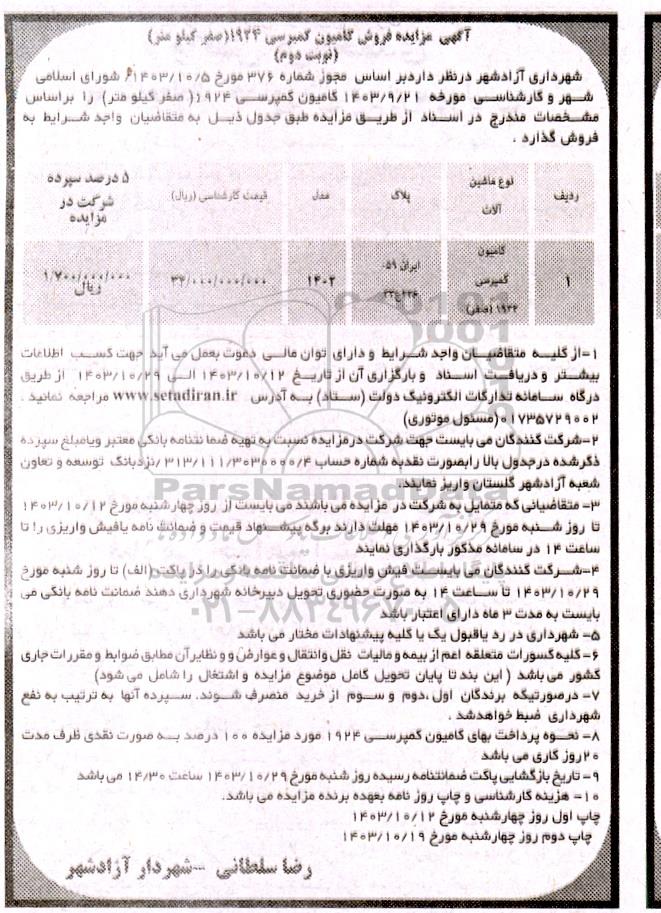 آگهی مزایده فروش کامیون کمپرسی ۱۹۲۴(صفر کیلو متر)
(نوبت دوم)
شهرداری آزادشهر درنظر داردبر اساس مجوز شماره ۳۷۶ مورخ ۱۴۰۳/۱۰/۵ شورای اسلامی
شهر و کارشناسی مورخه ۱۴۰۳/۹/۲۱ کامیون کمپرسی ۱۹۲۴( صفر کیلو متر) را براساس
مشخصات مندرج در اسناد از طریق مزایده طبق جدول ذیل به متقاضیان واجد شرایط به
فروش گذارد .
ردیف
نوع ماشین آلات
پلاک
مدل
قیمت کارشناسی (ریال)
۵ درصد سپرده شرکت در مزایده
۱
کامیون کمپرسی ۱۹۲۴ (صفر)
ایران ۵۹-
۱۴۰۲
۳۴/۰۰۰/۰۰۰/۰۰۰
۱/۷۰۰/۰۰۰/۰۰۰ ریال
۱=از کلیه متقاضیان واجد شرایط و دارای توان مالی دعوت بعمل می آید جهت کسب اطلاعات
بیشتر و دریافت اسناد و بارگزاری آن از تاریخ ۱۴۰۳/۱۰/۱۲ الی ۱۴۰۳/۱۰/۲۹ از طریق
درگاه سامانه تدارکات الکترونیک دولت (ستاد) به آدرس www.setadiran.ir مراجعه نمائید .
۰۱۷۳۵۷۲۹۰۰۲(مسئول موتوری)
۲=شرکت کنندگان می بایست جهت شرکت درمزایده نسبت به تهیه ضمانتنامه بانکی معتبر ویامبلغ سپرده
ذکرشده درجدول بالا رابصورت نقدبه شماره حساب ۳۱۳/۱۱۱/۳۰۳۰۰۰۰/۴ نزدبانک توسعه و تعاون
شعبه آزادشهر گلستان واریز نمایند.
۳= متقاضیانی که متمایل به شرکت در مزایده می باشند می بایست از روز چهارشنبه مورخ ۱۴۰۳/۱۰/۱۲
تا روز شنبه مورخ ۱۴۰۳/۱۰/۲۹ مهلت دارند برگه پیشنهاد قیمت و ضمانت نامه یافیش واریزی را تا
ساعت ۱۴ در سامانه مذکور بارگذاری نمایند
۴=شرکت کنندگان می بایست فیش واریزی یا ضمانت نامه بانکی را در پاکت (الف) تا روز شنبه مورخ
۱۴۰۳/۱۰/۲۹ تا ساعت ۱۴ به صورت حضوری تحویل دبیرخانه شهرداری دهند ضمانت نامه بانکی می
بایست به مدت ۳ ماه دارای اعتبار باشد
۵= شهرداری در رد یاقبول یک یا کلیه پیشنهادات مختار می باشد
۶=کلیه کسورات متعلقه اعم از بیمه و مالیات نقل وانتقال و عوارض و و نظایر آن مطابق ضوابط و مقررات جاری
کشور می باشد ( این بند تا پایان تحویل کامل موضوع مزایده و اشتغال را شامل می شود)
۷= درصورتیکه برندگان اول ،دوم و سوم از خرید منصرف شوند. سپرده آنها به ترتیب به نفع
شهرداری ضبط خواهدشد .
۸= نحوه پرداخت بهای کامیون کمپرسی ۱۹۲۴ مورد مزایده ۱۰۰ درصد به صورت نقدی ظرف مدت
۲۰روز کاری می باشد
۹= تاریخ بازگشایی پاکت ضمانتنامه رسیده روز شنبه مورخ ۱۴۰۳/۱۰/۲۹ ساعت ۱۴/۳۰ می باشد
۱۰= هزینه کارشناسی و چاپ روز نامه بعهده برنده مزایده می باشد.
چاپ اول روز چهارشنبه مورخ ۱۴۰۳/۱۰/۱۲
چاپ دوم روز چهارشنبه مورخ ۱۴۰۳/۱۰/۱۹
رضا سلطانی –شهردار آزادشهر
ParsNamadData
۰۲۱-۸۸۳۴۹۶۷۰-۵